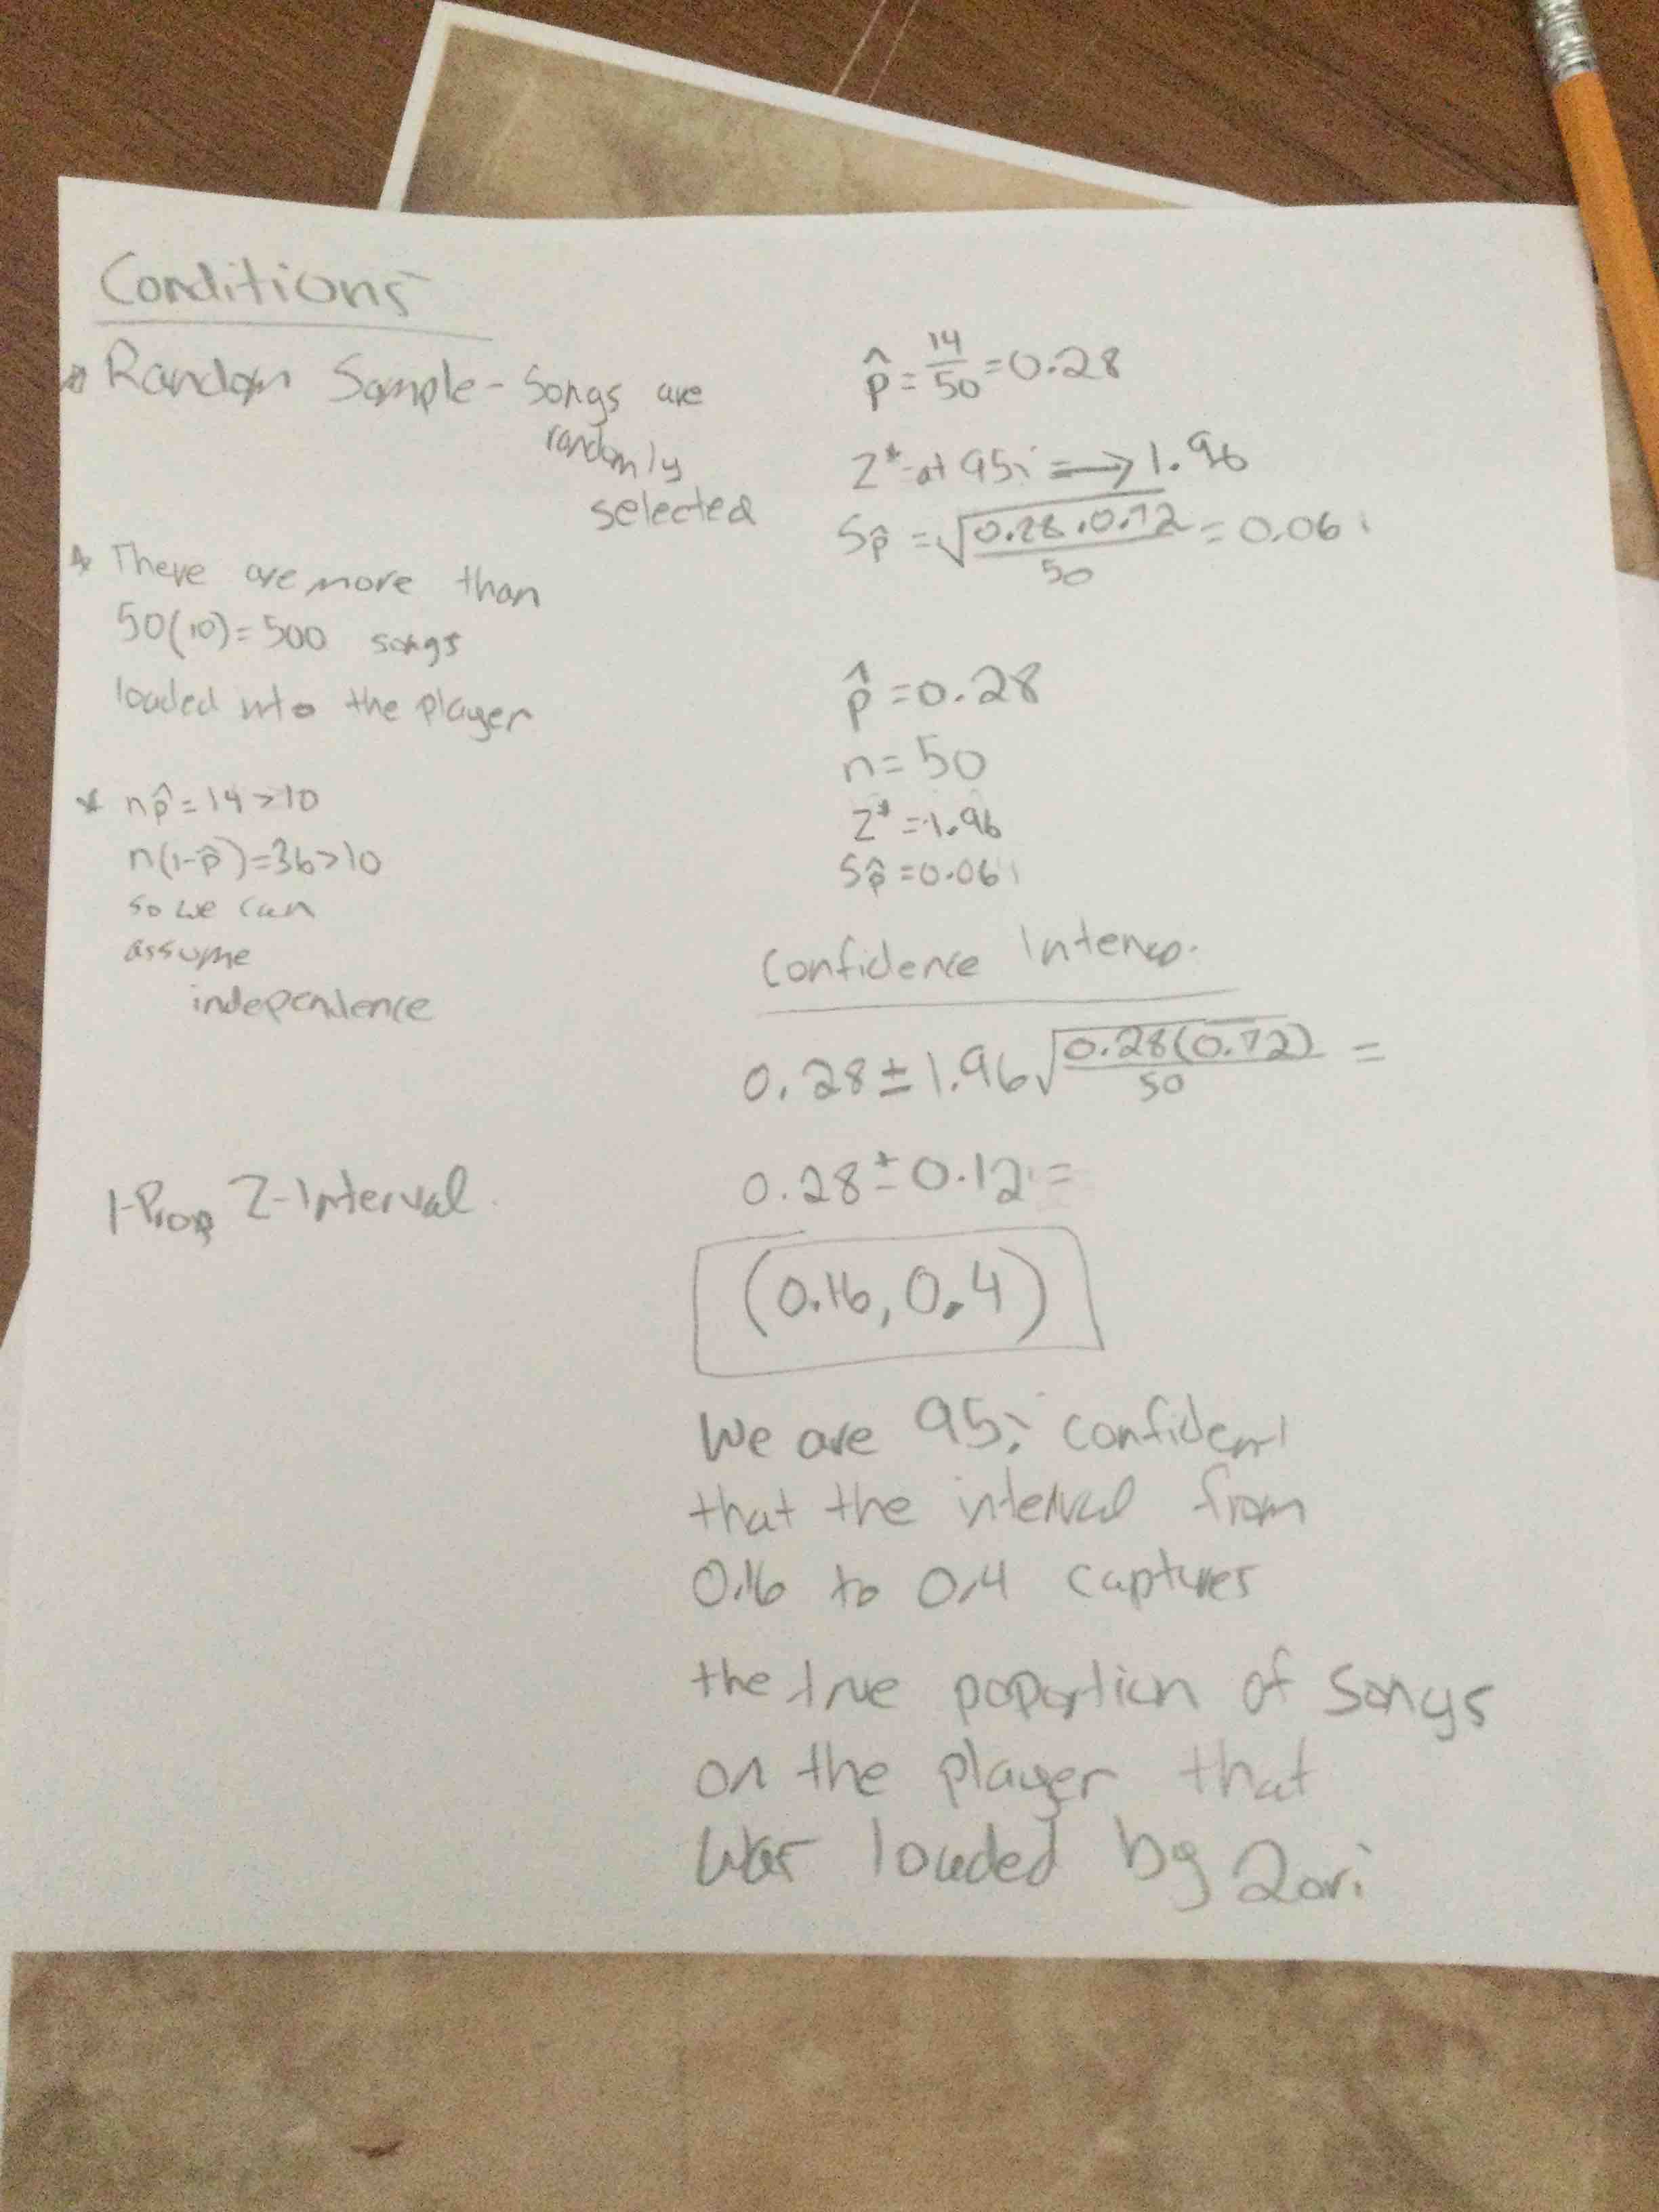 Conditions
* Random Sample - Songs are
randomly
selected
* There are more than
50(10)=500 songs
loaded into the player
* np̂ = 14 > 10
n(1-p̂)=36>10
so we can
assume
independence
1-Prop Z-Interval
p̂ = 14/50 = 0.28
Z* at 95% ⟹ 1.96
Sp̂ = √(0.28·0.72/50) = 0.06
p̂ = 0.28
n = 50
Z* = 1.96
Sp̂ = 0.06
Confidence
0.28 ± 1.96 √(0.28(0.72)/50) =
0.28 ± 0.12 =
(0.16, 0.4)
We are 95% confident
that the interval from
0.16 to 0.4 captures
the true poportion of songs
on the player that
was loaded by